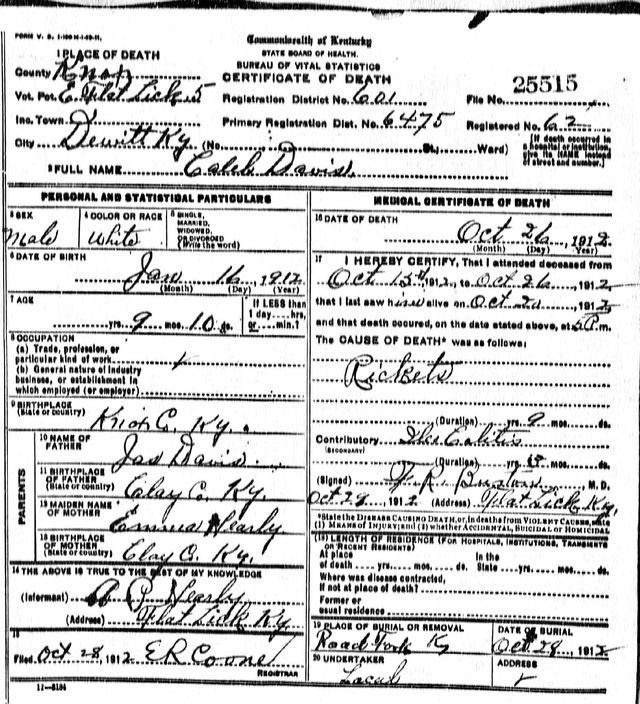 FORM V. S. 1-100 M-1-09-11.
Commonwealth of Kentucky
STATE BOARD OF HEALTH.
BUREAU OF VITAL STATISTICS
CERTIFICATE OF DEATH
1 PLACE OF DEATH
County Knox
Vot. Pct. E. Flat Lick 5
Registration District No. 601
File No. 25515
Inc. Town
Primary Registration Dist. No. 6475
Registered No. 62
City Dewitt Ky (No. St.; Ward)
[If death occurred in a hospital or institution, give its NAME instead of street and number.]
2 FULL NAME Caleb Davis.
PERSONAL AND STATISTICAL PARTICULARS
3 SEX Male
4 COLOR OR RACE White
5 SINGLE, MARRIED, WIDOWED, OR DIVORCED (Write the word)
6 DATE OF BIRTH Jan 16, 1912
(Month) (Day) (Year)
7 AGE yrs. 9 mos. 10 ds.
If LESS than 1 day hrs. or min.?
8 OCCUPATION
(a) Trade, profession, or particular kind of work
(b) General nature of industry business, or establishment in which employed (or employer)
9 BIRTHPLACE (State or country) Knox Co. Ky.
PARENTS
10 NAME OF FATHER Jas Davis
11 BIRTHPLACE OF FATHER (State or country) Clay C. Ky.
12 MAIDEN NAME OF MOTHER Emma
13 BIRTHPLACE OF MOTHER (State or country) Clay C. Ky.
14 THE ABOVE IS TRUE TO THE BEST OF MY KNOWLEDGE
(Informant)
(Address) Flat Lick Ky
15
Filed Oct 28, 1912 E R Coone
REGISTRAR
11-8184
MEDICAL CERTIFICATE OF DEATH
16 DATE OF DEATH Oct 26, 1912
(Month) (Day) (Year)
17 I HEREBY CERTIFY, That I attended deceased from
Oct 15th, 1912, to Oct 26, 1912
that I last saw him alive on Oct 1912
and that death occured, on the date stated above, at P. m.
The CAUSE OF DEATH* was as follows:
Rickets
(Duration) yrs. 9 mos. ds.
Contributory Ileo Colitis
(SECONDARY)
(Duration) yrs. mos. ds.
(Signed) M. D.
Oct 29, 1912 (Address) Flat Lick Ky.
*State the DISEASE CAUSING DEATH, or, in deaths from VIOLENT CAUSES, state
(1) MEANS OF INJURY; and (2) whether ACCIDENTAL, SUICIDAL or HOMICIDAL
(18) LENGTH OF RESIDENCE (FOR HOSPITALS, INSTITUTIONS, TRANSIENTS OR RECENT RESIDENTS)
At place of death yrs. mos. ds. In the State yrs. mos. ds.
Where was disease contracted,
if not at place of death?
Former or usual residence
19 PLACE OF BURIAL OR REMOVAL Road Fork Ky
DATE OF BURIAL Oct. 28, 1912
20 UNDERTAKER Local
ADDRESS